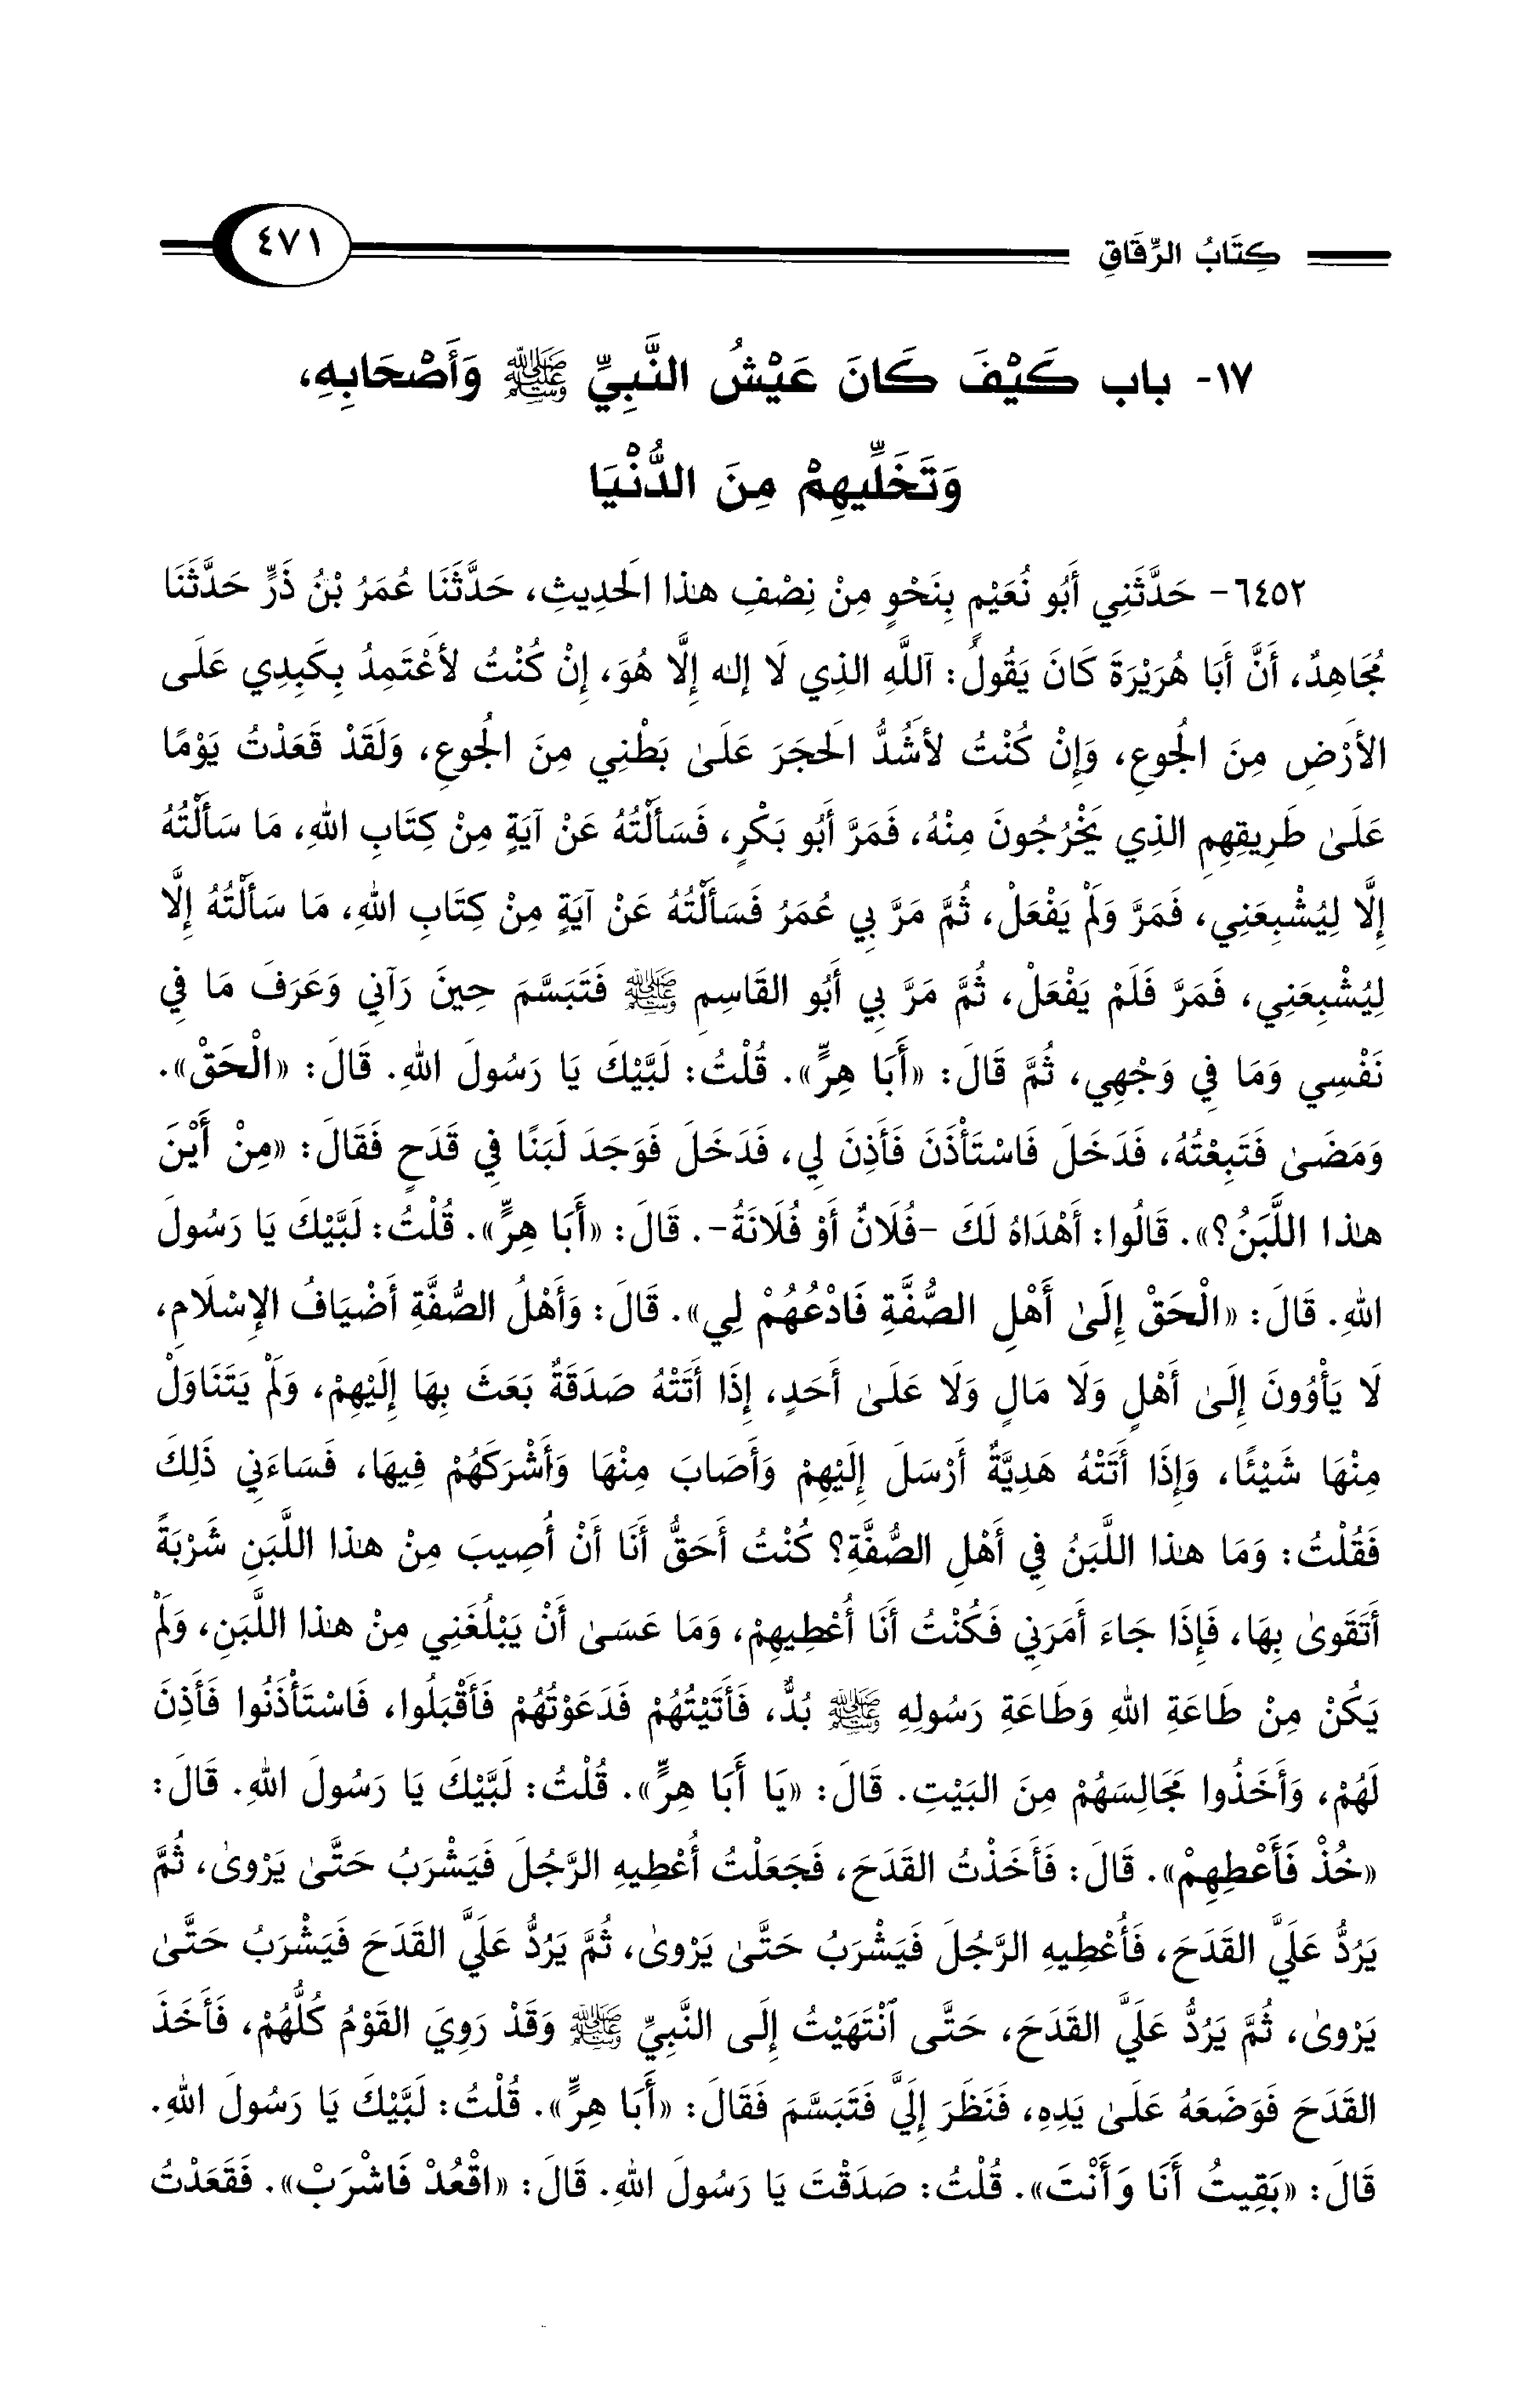 كِتَابُ الرِّقَاقِ
٤٧١
١٧- باب كَيْفَ كَانَ عَيْشُ النَّبِيِّ ﷺ وَأَصْحَابِهِ،
وَتَخَلِّيهِمْ مِنَ الدُّنْيَا
٦٤٥٢- حَدَّثَنِي أَبُو نُعَيْمٍ بِنَحْوٍ مِنْ نِصْفِ هذا الَحدِيثِ، حَدَّثَنَا عُمَرُ بْنُ ذَرٍّ حَدَّثَنَا
مُجَاهِدٌ، أَنَّ أَبَا هُرَيْرَةَ كَانَ يَقُولُ: آللَّهِ الذِي لَا إله إِلَّا هُوَ، إِنْ كُنْتُ لأَعْتَمِدُ بِكَبِدِي عَلَى
الأَرْضِ مِنَ الُجوعِ، وَإِنْ كُنْتُ لأَشُدُّ الَحجَرَ عَلَىٰ بَطْنِي مِنَ الُجوعِ، وَلَقَدْ قَعَدْتُ يَوْمًا
عَلَىٰ طَرِيقِهِمِ الذِي يَخْرُجُونَ مِنْهُ، فَمَرَّ أَبُو بَكْرٍ، فَسَأَلْتُهُ عَنْ آيَةٍ مِنْ كِتَابِ اللهِ، مَا سَأَلْتُهُ
إِلَّا لِيُشْبِعَنِي، فَمَرَّ وَلَمْ يَفْعَلْ، ثُمَّ مَرَّ بِي عُمَرُ فَسَأَلْتُهُ عَنْ آيَةٍ مِنْ كِتَابِ اللهِ، مَا سَأَلْتُهُ إِلَّا
لِيُشْبِعَنِي، فَمَرَّ فَلَمْ يَفْعَلْ، ثُمَّ مَرَّ بِي أَبُو القَاسِمِ ﷺ فَتَبَسَّمَ حِينَ رَآنِي وَعَرَفَ مَا فِي
نَفْسِي وَمَا فِي وَجْهِي، ثُمَّ قَالَ: «أَبَا هِرٍّ». قُلْتُ: لَبَّيْكَ يَا رَسُولَ اللهِ. قَالَ: «الْحَقْ».
وَمَضَىٰ فَتَبِعْتُهُ، فَدَخَلَ فَاسْتَأْذَنَ فَأَذِنَ لِي، فَدَخَلَ فَوَجَدَ لَبَنًا فِي قَدَحٍ فَقَالَ: «مِنْ أَيْنَ
هذا اللَّبَنُ؟». قَالُوا: أَهْدَاهُ لَكَ -فُلَانٌ أَوْ فُلَانَةُ-. قَالَ: «أَبَا هِرٍّ». قُلْتُ: لَبَّيْكَ يَا رَسُولَ
اللهِ. قَالَ: «الْحَقْ إِلَىٰ أَهْلِ الصُّفَّةِ فَادْعُهُمْ لِي». قَالَ: وَأَهْلُ الصُّفَّةِ أَضْيَافُ الإِسْلَامِ،
لَا يَأْوُونَ إِلَىٰ أَهْلٍ وَلَا مَالٍ وَلَا عَلَىٰ أَحَدٍ، إِذَا أَتَتْهُ صَدَقَةٌ بَعَثَ بِهَا إِلَيْهِمْ، وَلَمْ يَتَنَاوَلْ
مِنْهَا شَيْئًا، وَإِذَا أَتَتْهُ هَدِيَّةٌ أَرْسَلَ إِلَيْهِمْ وَأَصَابَ مِنْهَا وَأَشْرَكَهُمْ فِيهَا، فَسَاءَنِي ذَلِكَ
فَقُلْتُ: وَمَا هذا اللَّبَنُ فِي أَهْلِ الصُّفَّةِ؟ كُنْتُ أَحَقُّ أَنَا أَنْ أُصِيبَ مِنْ هذا اللَّبَنِ شَرْبَةً
أَتَقَوىٰ بِهَا، فَإِذَا جَاءَ أَمَرَنِي فَكُنْتُ أَنَا أُعْطِيهِمْ، وَمَا عَسَىٰ أَنْ يَبْلُغَنِي مِنْ هذا اللَّبَنِ، وَلَمْ
يَكُنْ مِنْ طَاعَةِ اللهِ وَطَاعَةِ رَسُولِهِ ﷺ بُدٌّ، فَأَتَيْتُهُمْ فَدَعَوْتُهُمْ فَأَقْبَلُوا، فَاسْتَأْذَنُوا فَأَذِنَ
لَهُمْ، وَأَخَذُوا مَجَالِسَهُمْ مِنَ البَيْتِ. قَالَ: «يَا أَبَا هِرٍّ». قُلْتُ: لَبَّيْكَ يَا رَسُولَ اللهِ. قَالَ:
«خُذْ فَأَعْطِهِمْ». قَالَ: فَأَخَذْتُ القَدَحَ، فَجَعَلْتُ أُعْطِيهِ الرَّجُلَ فَيَشْرَبُ حَتَّىٰ يَرْوىٰ، ثُمَّ
يَرُدُّ عَلَيَّ القَدَحَ، فَأُعْطِيهِ الرَّجُلَ فَيَشْرَبُ حَتَّىٰ يَرْوىٰ، ثُمَّ يَرُدُّ عَلَيَّ القَدَحَ فَيَشْرَبُ حَتَّىٰ
يَرْوىٰ، ثُمَّ يَرُدُّ عَلَيَّ القَدَحَ، حَتَّى ٱنْتَهَيْتُ إِلَى النَّبِيِّ ﷺ وَقَدْ رَوِيَ القَوْمُ كُلُّهُمْ، فَأَخَذَ
القَدَحَ فَوَضَعَهُ عَلَىٰ يَدِهِ، فَنَظَرَ إِلَيَّ فَتَبَسَّمَ فَقَالَ: «أَبَا هِرٍّ». قُلْتُ: لَبَّيْكَ يَا رَسُولَ اللهِ.
قَالَ: «بَقِيتُ أَنَا وَأَنْتَ». قُلْتُ: صَدَقْتَ يَا رَسُولَ اللهِ. قَالَ: «اقْعُدْ فَاشْرَبْ». فَقَعَدْتُ